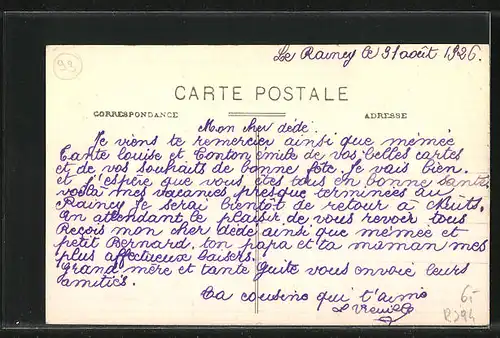 93
Le Raincy le 31 août 1926.
CARTE POSTALE
CORRESPONDANCE
ADRESSE
Mon cher dédé.
Je viens te remercier ainsi que mémée
tante Louise et tonton émile de vos belles cartes
et de vos souhaits de bonne fête. Je vais bien.
et j'espère que vous êtes tous en bonne santé.
voilà mes vacances presque terminées au
Raincy je serai bientôt de retour à Nuits.
En attendant le plaisir de vous revoir tous
Reçois mon cher dédé ainsi que mémée et
petit Bernard, ton papa et ta maman mes
plus affectueux baisers.
Grand mère et tante Guite vous envoie leurs
amitiés.
Ta cousine qui t'aime
6-
R294